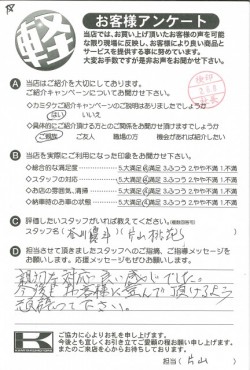 軽
お客様アンケート
当店では、お買い上げ頂いたお客様の声を可能
な限り現場に反映し、お客様により良い商品と
サービスを提供する事に努めています。
大変お手数ですが是非お声をお聞かせ下さい。
A 当店はご紹介を大切にしております。
ご紹介キャンペーンについてお聞かせ下さい。
◇カミタケご紹介キャンペーンのご説明はありましたでしょうか
はい いいえ
◇具体的にご紹介頂ける方とのご関係をお聞かせ頂けますでしょうか
ご親族 ご友人 職場の方 機会があれば紹介したい
B 当店を実際にご利用になった印象をお聞かせ下さい。
◇総合的な満足度 5.大満足 4.満足 3.ふつう 2.やや不満 1.不満
◇スタッフの対応 5.大満足 4.満足 3.ふつう 2.やや不満 1.不満
◇お店の雰囲気、清掃 5.大満足 4.満足 3.ふつう 2.やや不満 1.不満
◇納車時のお車の状態 5.大満足 4.満足 3.ふつう 2.やや不満 1.不満
C 評価したいスタッフがいれば教えてください。(複数回答可)
スタッフ名( 片山
D 担当させて頂きましたスタッフへのご指摘、ご指導メッセージを
お願いします。応援メッセージもぜひお願います。
親切な対応で良い感じでした。
今後もお客様に喜んで頂けるよう
頑張って下さい。
K
ご協力に心よりお礼を申し上げます。
今後とも宜しくお引き立てご愛顧の程お願い申し上げます。
またのご来店を心からお待ちしております。
担当( 片山 )